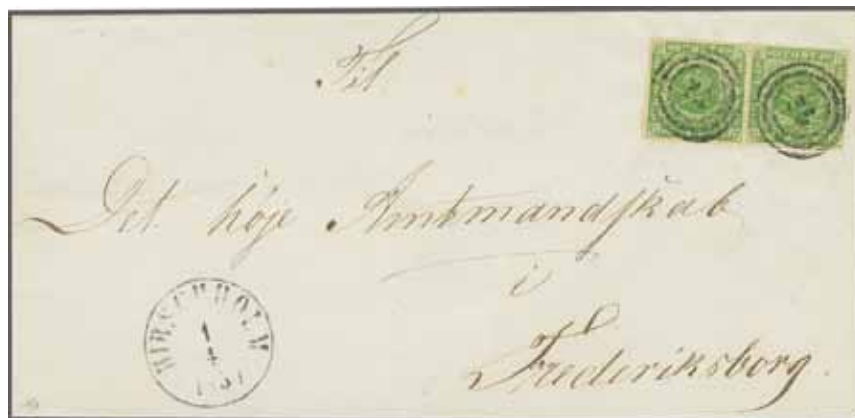 Til
Det höje Amtmandskab
i
Frederiksborg.
HIRSCHHOLM
1
4